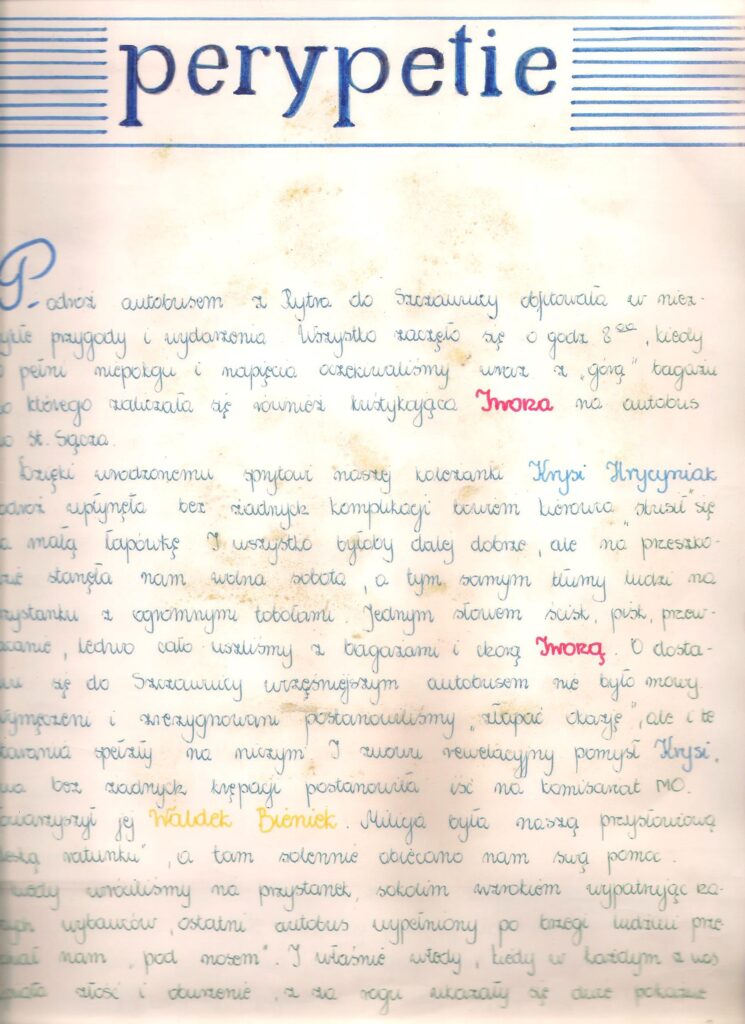 perypetie
Podróż autobusem z Rytra do Szczawnicy obfitowała w niez-
ykłe przygody i wydarzenia. Wszystko zaczęło się o godz 8⁰⁰, kiedy
pełni niepokoju i napięcia oczekiwaliśmy wraz z „górą" bagażu
o którego zaliczała się również kustykająca Iwona na autobus
o St. Sącza.
Dzięki wrodzonemu sprytowi naszej koleżanki Krysi Hrycyniak
odróż upłynęła bez żadnych komplikacji bowiem kierowca „skusił" się
a małą łapówkę I wszystko byłoby dalej dobrze, ale na przeszko-
zie stanęła nam wolna sobota, a tym samym tłumy ludzi na
rzystanku z ogromnymi tobołami. Jednym słowem ścisk, pisk, przew-
acanie, ledwo cało uszliśmy z bagażami i chorą Iwoną. O dosta-
iu się do Szczawnicy wcześniejszym autobusem nie było mowy.
ymęczeni i zrezygnowani postanowiliśmy „złapać okazję", ale i te
tarania spełzły na niczym I znowu rewelacyjny pomysł Krysi,
na bez żadnych krępacji postanowiła iść na komisariat MO.
owarzyszył jej Waldek Bieniek. Milicja była naszą przysłowiową
deską ratunku", a tam solennie obiecano nam swą pomoc.
kiedy wróciliśmy na przystanek, sokolim wzrokiem wypatrując na-
zych wybawców, ostatni autobus wypełniony po brzegi ludźmi prze-
chał nam „pod nosem". I właśnie wtedy, kiedy w każdym z nas
złość i oburzenie, z za rogu ukazały się duże pokaźne